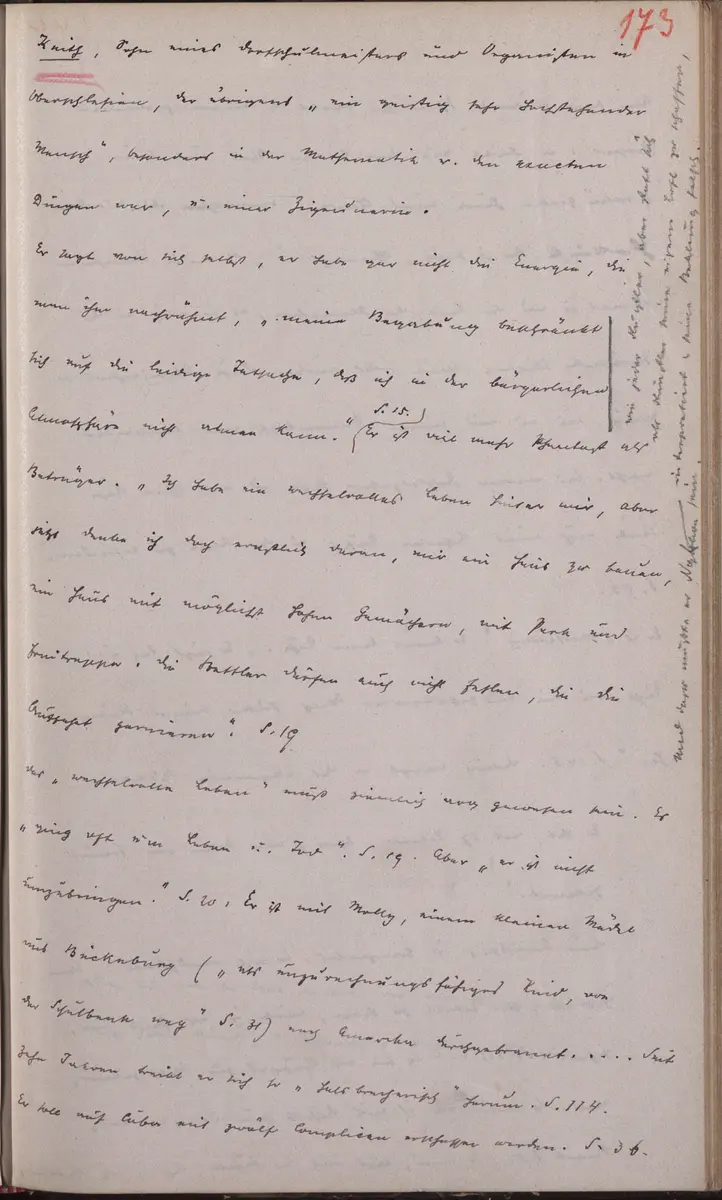 173
Keith, Sohn eines Dorfschulmeisters und Organisten in
Oberschlesien, der übrigens „ein geistig sehr hochstehender
Mensch", besonders in der Mathematik u. den exacten
Dingen war, u. einer Zigeunerin.
Er sagt von sich selbst, er habe gar nicht die Energie, die
man ihm nachrühmt, „meine Begabung beschränkt
sich auf die leidige Tatsache, daß ich in der bürgerlichen
Atmosphäre nicht atmen kann." S. 15. (Er ist viel mehr Phantast als
Betrüger. „Ich habe ein wechselvolles Leben hinter mir, aber
jetzt denke ich doch ernstlich daran, mir ein Haus zu bauen,
ein Haus mit möglichst hohen Gemächern, mit Park und
Freitreppe. Die Bettler dürfen auch nicht fehlen, die die
Auffahrt garnieren." S. 19
Das „wechselvolle Leben" muß ziemlich arg gewesen sein. Es
„ging oft um Leben u. Tod". S. 19. Aber „er ist nicht
umzubringen." S. 20. Er ist mit Molly, einem kleinen Mädel
aus Bückeburg („als unzurechnungsfähiges Kind, von
der Schulbank weg" S. 31) nach Amerika durchgebrannt..... Seit
zehn Jahren treibt er sich so „halsbrecherisch" herum. S. 114.
Er soll auf Cuba mit zwölf Complicen erschossen werden. S. 36.
wie jeder Künstler, aber statt sich
als Künstler seine eigene Welt zu schaffen,
interpretiert seine falsch.
Und darum müßte er sein.